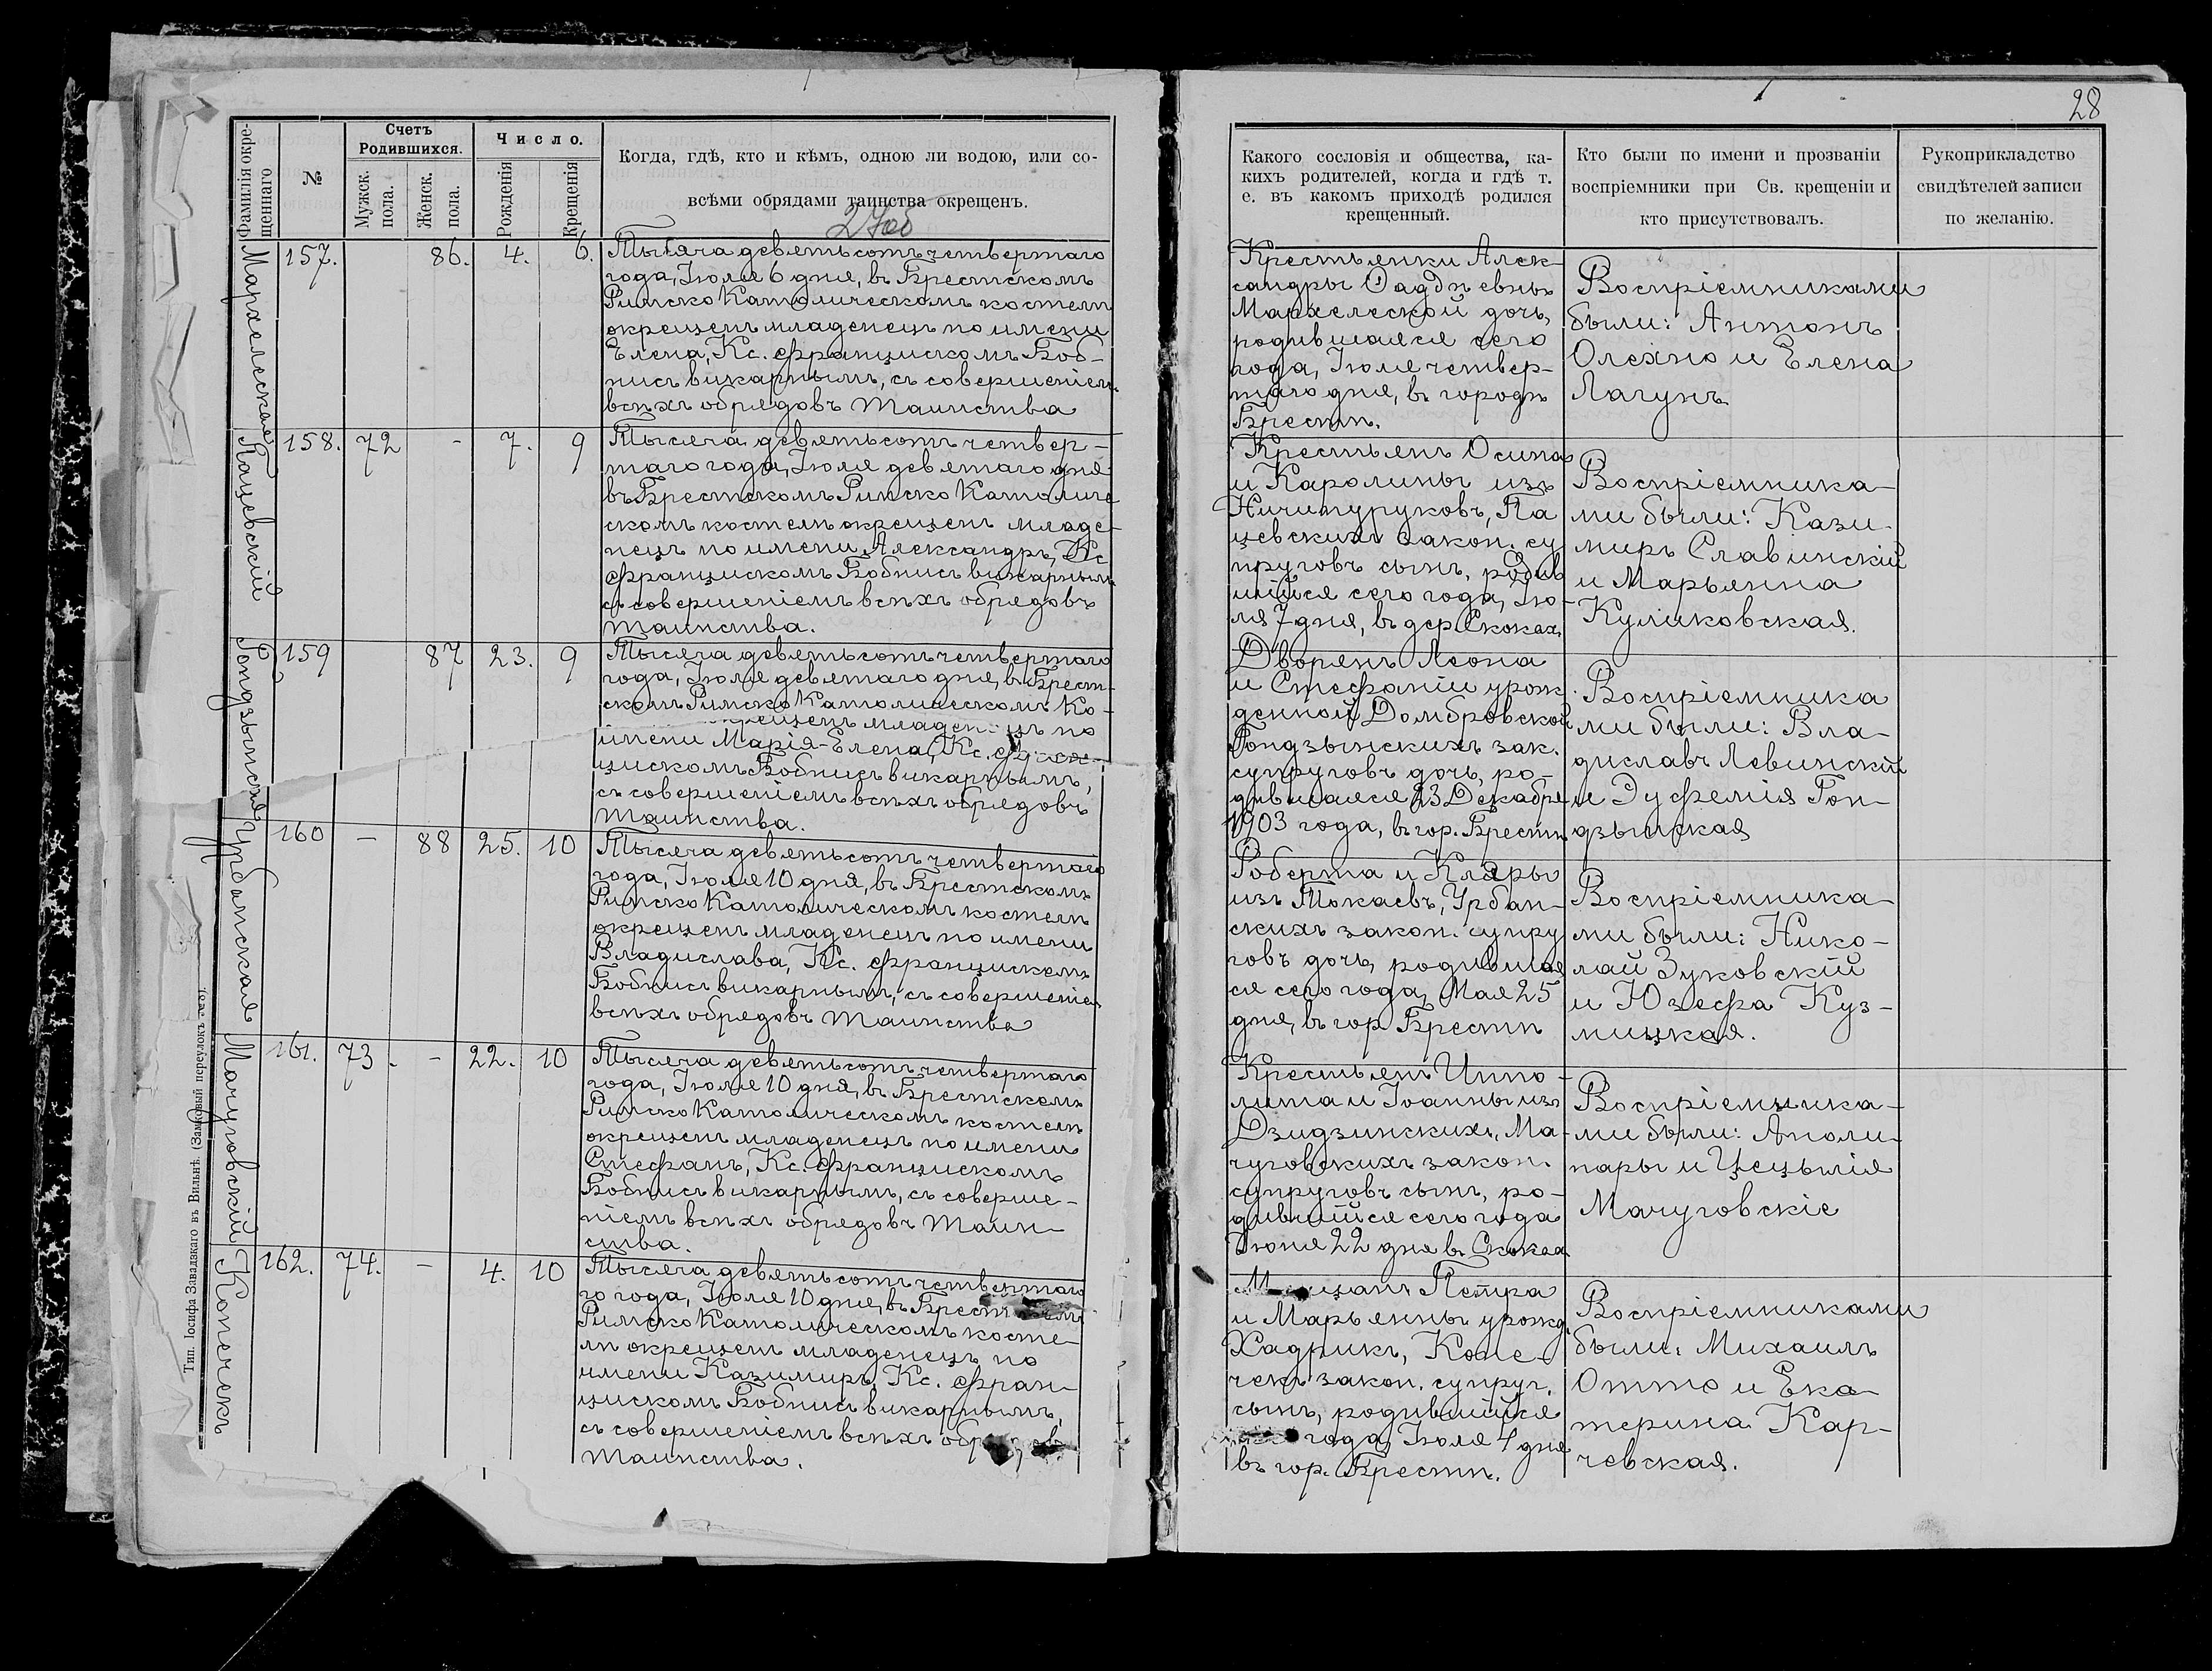 28
Фамилія окре-
щеннаго
№
Счетъ
Родившихся.
Мужск.
пола.
Женск.
пола.
Число.
Рожденія
Крещенія
Когда, гдѣ, кто и кѣмъ, одною ли водою, или со-
всѣми обрядами таинства окрещенъ.
Какого сословія и общества, ка-
кихъ родителей, когда и гдѣ т.
е. въ какомъ приходѣ родился
крещенный.
Кто были по имени и прозваніи
воспріемники при Св. крещеніи и
кто присутствовалъ.
Рукоприкладство
свидѣтелей записи
по желанію.
Мархелеская
157.
86.
4.
6.
Тысяча девятьсотъ четвертаго
года, Іюля 6 дня, въ Брестскомъ
Римско Католическомъ костелѣ
окрещенъ младенецъ по имени
Елена, Кс. Францискомъ Боб-
нисъ викарнымъ, съ совершеніемъ
всѣхъ обрядовъ Таинства
Крестьянки Алек-
сандры Фаддѣевны
Мархелеской дочь,
родившаяся сего
года, Іюля четвер-
таго дня, въ городѣ
Брестѣ.
Воспріемниками
были: Антонъ
Олехно и Елена
Лагунъ
Пацевскій
158.
72
-
7.
9
Тысяча девятьсотъ четвер-
таго года, Іюля девятаго дня
въ Брестскомъ Римско Католиче
скомъ костелѣ окрещенъ младе-
нецъ по имени Александръ, Кс
Францискомъ Бобнисъ викарнымъ
съ совершеніемъ всѣхъ обрядовъ
Таинства.
Крестьянъ Осипа
и Каролины изъ
Ничипуруковъ, Па
цевскихъ закон. су
пруговъ сынъ, родив
шійся сего года, Ію-
ля 7 дня, въ дер Скокахъ
Воспріемника-
ми были: Кази-
миръ Славинскій
и Марьянна
Куликовская.
Гондзынская
159
87
23.
9
Тысяча девятьсотъ четвертаго
года, Іюля девятаго дня, въ Брест-
скомъ Римско Католическомъ Ко-
окрещенъ младенецъ по
имени Марія-Елена, Кс. Фран-
цискомъ Бобнисъ викарнымъ,
съ совершеніемъ всѣхъ обрядовъ
Таинства.
Дворянъ Леона
и Стефаніи урож
денной Домбровской
Гондзынскихъ зак.
супруговъ дочь, ро-
дившаяся 23 Декабря
1903 года, въ гор. Брестѣ
Воспріемника
ми были: Вла-
диславъ Левинскій
и Эуфемія Гон-
дзынская
Урбанская
160
-
88
25.
10
Тысяча девятьсотъ четвертаго
года, Іюля 10 дня, въ Брестскомъ
Римско Католическомъ костелѣ
окрещенъ младенецъ по имени
Владислава, Кс. Францискомъ
Бобнисъ викарнымъ, съ совершеніем
всѣхъ обрядовъ Таинства
Роберта и Клары
изъ Токаевъ, Урбан-
скихъ закон. супру
говъ дочь, родившая
ся сего года, Мая 25
дня, въ гор Брестѣ
Воспріемника-
ми были: Нико-
лай Зуковскій
и Юзефа Куз-
мицкая.
Мачуговскій
161.
73.
-
22.
10
Тысяча девятьсотъ четвертаго
года, Іюля 10 дня, въ Брестскомъ
Римско Католическомъ костелѣ
окрещенъ младенецъ по имени
Стефанъ, Кс. Францискомъ
Бобнисъ викарнымъ, съ соверше-
ніемъ всѣхъ обрядовъ Таин-
ства.
Крестьянъ Иппо-
лита и Іоанны изъ
Дзидзинскихъ, Ма-
чуговскихъ закон.
супруговъ сынъ, ро-
дившійся сего года
Іюня 22 дня въ Скоках
Воспріемника-
ми были: Аполи-
нары и Цецылія
Мачуговскіе
Копечекъ
162.
74.
-
4.
10
Тысяча девятьсотъ четвертаго
го года, Іюля 10 дня, въ Брестскомъ
Римско Католическомъ косте-
лѣ окрещенъ младенецъ по
имени Казимиръ, Кс. Фран-
цискомъ Бобнисъ викарнымъ,
съ совершеніемъ всѣхъ обрядовъ
Таинства.
Мѣщанъ Петра
и Марьянны урожд.
Хадрикъ, Копе-
чекъ закон. супруг.
сынъ, родившійся
года, Іюля 4 дня
въ гор. Брестѣ.
Воспріемниками
были: Михаилъ
Отто и Ека-
терина Кар-
чевская.
Тип. Іосифа Завадзкаго въ Вильнѣ. (Замковый переулокъ